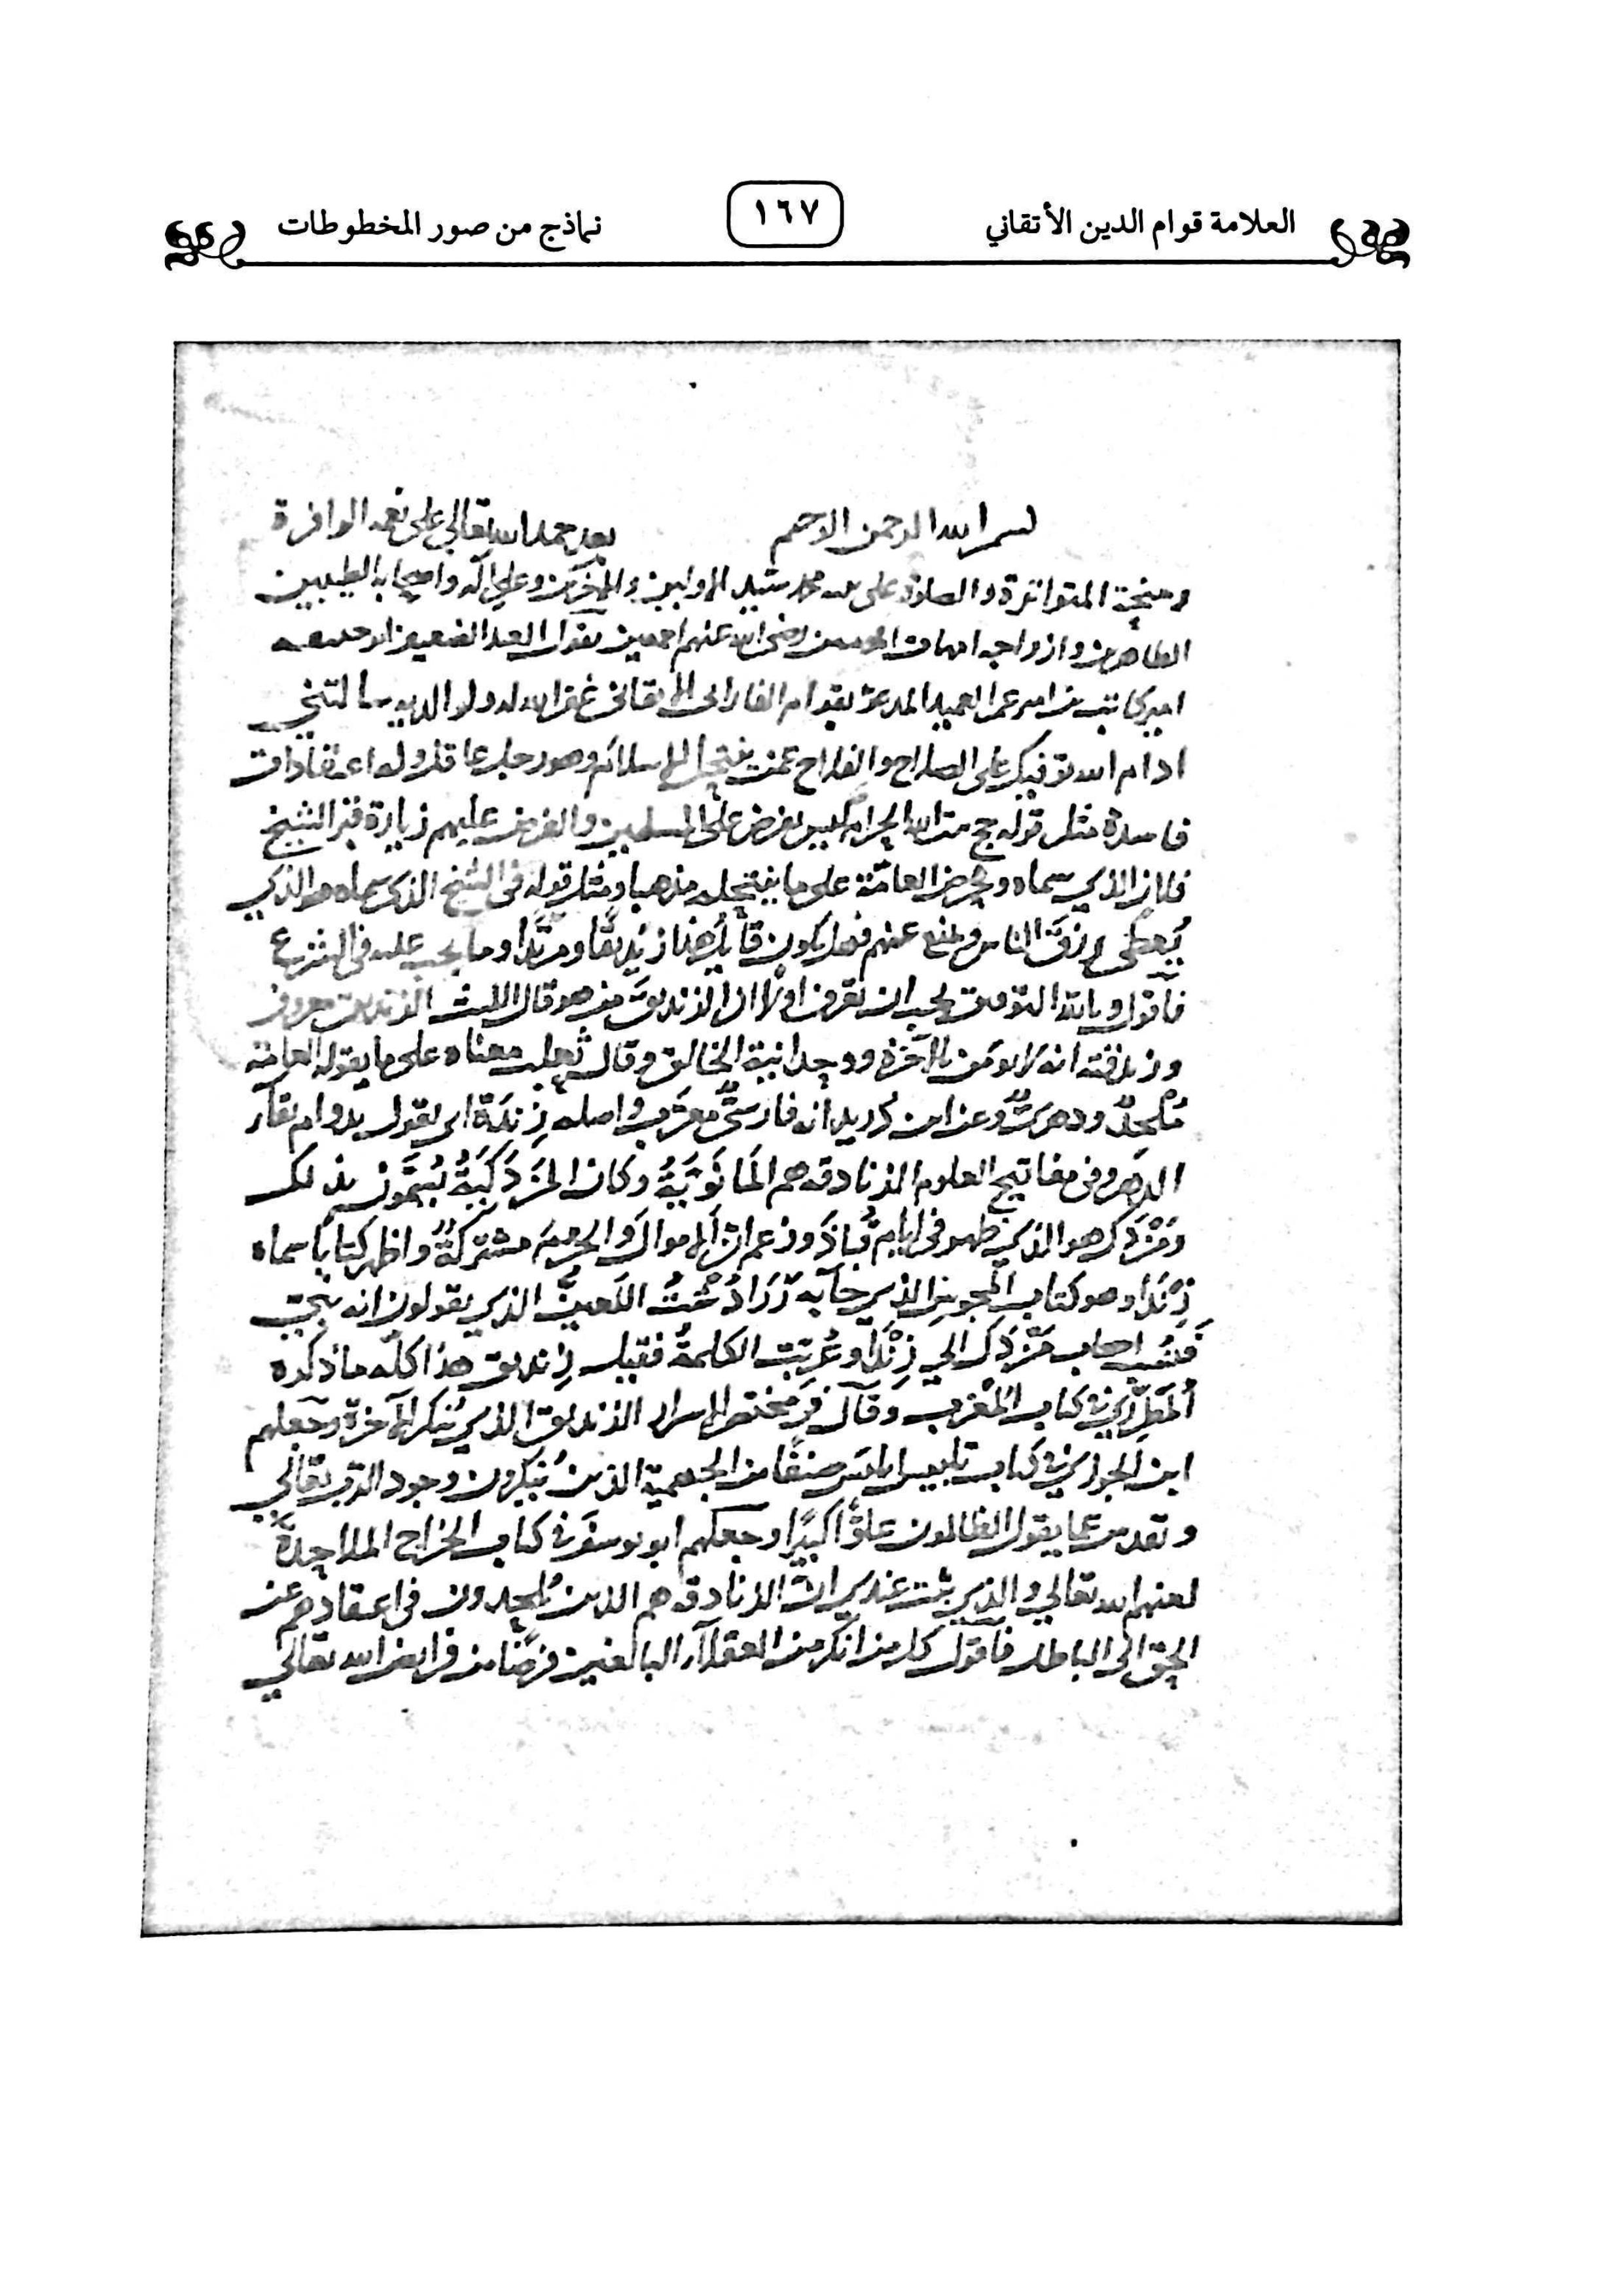 العلامة قوام الدين الأتقاني
١٦٧
نماذج من صور المخطوطات
بسم الله الرحمن الرحيم بعد حمد الله تعالى على نعمه الوافرة
ومنحته المتواترة والصلوة على محمد سيد الاولين والاخرين وعلى آله واصحابه الطيبين
الطاهرين وازواجه امهات المومنين رضي الله عنهم اجمعين يقول العبد الضعيف ابو حنيفه
امير كاتب بن امير عمر العميد المدعو بقوام الفارابي الاتقاني غفر الله له ولوالديه سالتني
ادام الله توفيكر على الصلاح والفلاح عمن ينتحل الاسلام وهو رجل عاقل وله اعتقادات
فاسدة مثل قوله حج بيت الله الحرام ليس بفرض على المسلمين والفرض عليهم زيارة قبر الشيخ
فلان الذي سماه ويحرض العامّة على ما ينتحله مذهبا ومثل قوله في الشيخ الذي سماه هو الذي
يُعطي رزق الناس ويمنع عنهم فهل يكون قائل هذا زنديقًا ومرتدًا وما يجب عليه في الشرع
فاقول وبالله التوفيق يجب ان يعرف اولا ان الزنديق من هو قال الليث الزنديق معروف
وزندقته انه لا يومن بالآخرة ووحدانية الخالق وقال ثعلب معناه على ما يقوله العامّة
مُلْحِدٌ ودهريٌّ وعن ابن دريد انه فارسيٌّ معرّب واصله زِندَة اي يقول بدوام بقآء
الدهر وفي مفاتيح العلوم الزنادقه هم المانَوَيَّةُ وكان المَزدَكِيَّةُ يُسَمَّون بذلك
ومَزْدَك هو الذي ظهر في ايام قُباذَ وزعم ان الاموال والحرم مشتركةٌ واظهر كتابًا سماه
زَنْدًا وهو كتاب المجوس الذي جآء به زَرَادُشْتُ اللعينُ الذي يقولون انه نبي
فنُسب اصحاب مَزْدَك الى زَنْدًا وعُرِّبت الكلمةُ فقيل زنديق هذا كلّه ما ذكره
المطرِّزي في كتاب المُغْرِب وقال في مختصر الاسرار الزنديق الذي يُنكر الآخرة وجعلهم
ابن الجوزي في كتاب تلبيس ابليس صنفًا من الجهمية الذين يُنكرون وجود الرّب تعالى
وتقدس عما يقول الظالمون علوًّا كبيرًا وجعلهم ابو يوسف في كتاب الخراج الملاحِدةَ
لعنهم الله تعالى والذي يثبت عندي ان الزنادقه هم الذين يُلحِدون في اعتقادهم عن
الحق الى الباطل فاقول كل من انكر من العقلآء البالغين فرضًا من فرايض الله تعالى